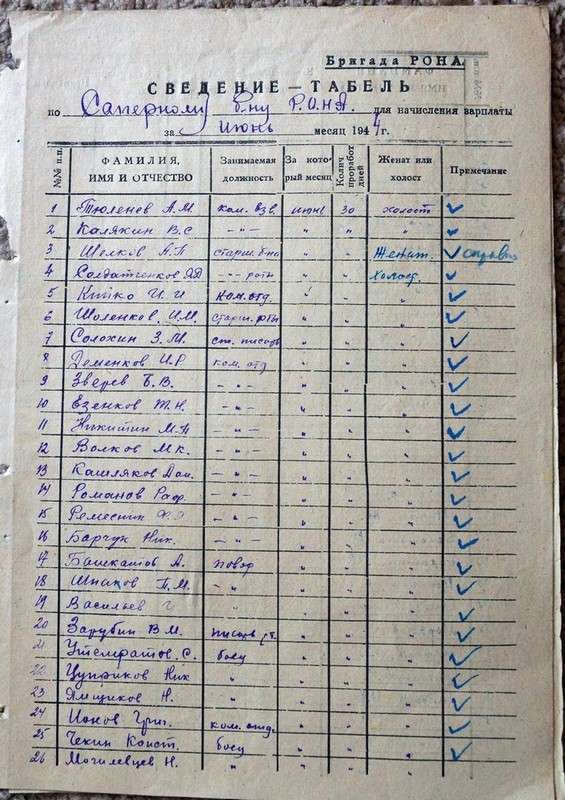 Бригада РОНА
СВЕДЕНИЕ — ТАБЕЛЬ
по Саперному б-ну Р.О.Н.А. для начисления зарплаты
за июнь месяц 1944 г.
№№ п.п. ФАМИЛИЯ, ИМЯ И ОТЧЕСТВО Занимаемая должность За который месяц Колич. проработ дней Женат или холост Примечание
1 Тюленев А.М. ком. взв. июнь 30 холост ✓
2 Каляжин В.С. — " — " " " ✓
3 Шелков А.П. старш. б-на " " Женат. ✓
4 Солдатченков — " — роты " " Холост. ✓
5 Китко И.И ком. отд. " " " ✓
6 Шаленков И.М. старш. роты " " " ✓
7 Солохин З.М. ст. писарь " " " ✓
8 Деменков И.Р ком. отд " " " ✓
9 Зверев Б.В. — " — " " " ✓
10 Езенков Т.Н. — " — " " " ✓
11 Никитин М.П — " — " " " ✓
12 Волков М.к. — " — " " " ✓
13 Кашляков Дан. — " — " " " ✓
14 Романов Раф. — " — " " " ✓
15 — " — " " " ✓
16 Барчук Ник. — " — " " " ✓
17 Башкатов А. повар " " " ✓
18 Шпаков П.М. — " " " " ✓
19 Васильев Г " " " " ✓
20 Зарубин В.М. писарь " " " ✓
21 С. боец " " " ✓
22 Цуприков Ник " " " " ✓
23 Ямщиков Н. " " " " ✓
24 Ионов Григ. ком. отд. " " " ✓
25 Чекин Конст. боец " " " ✓
26 Могилевцев Н. " " " "